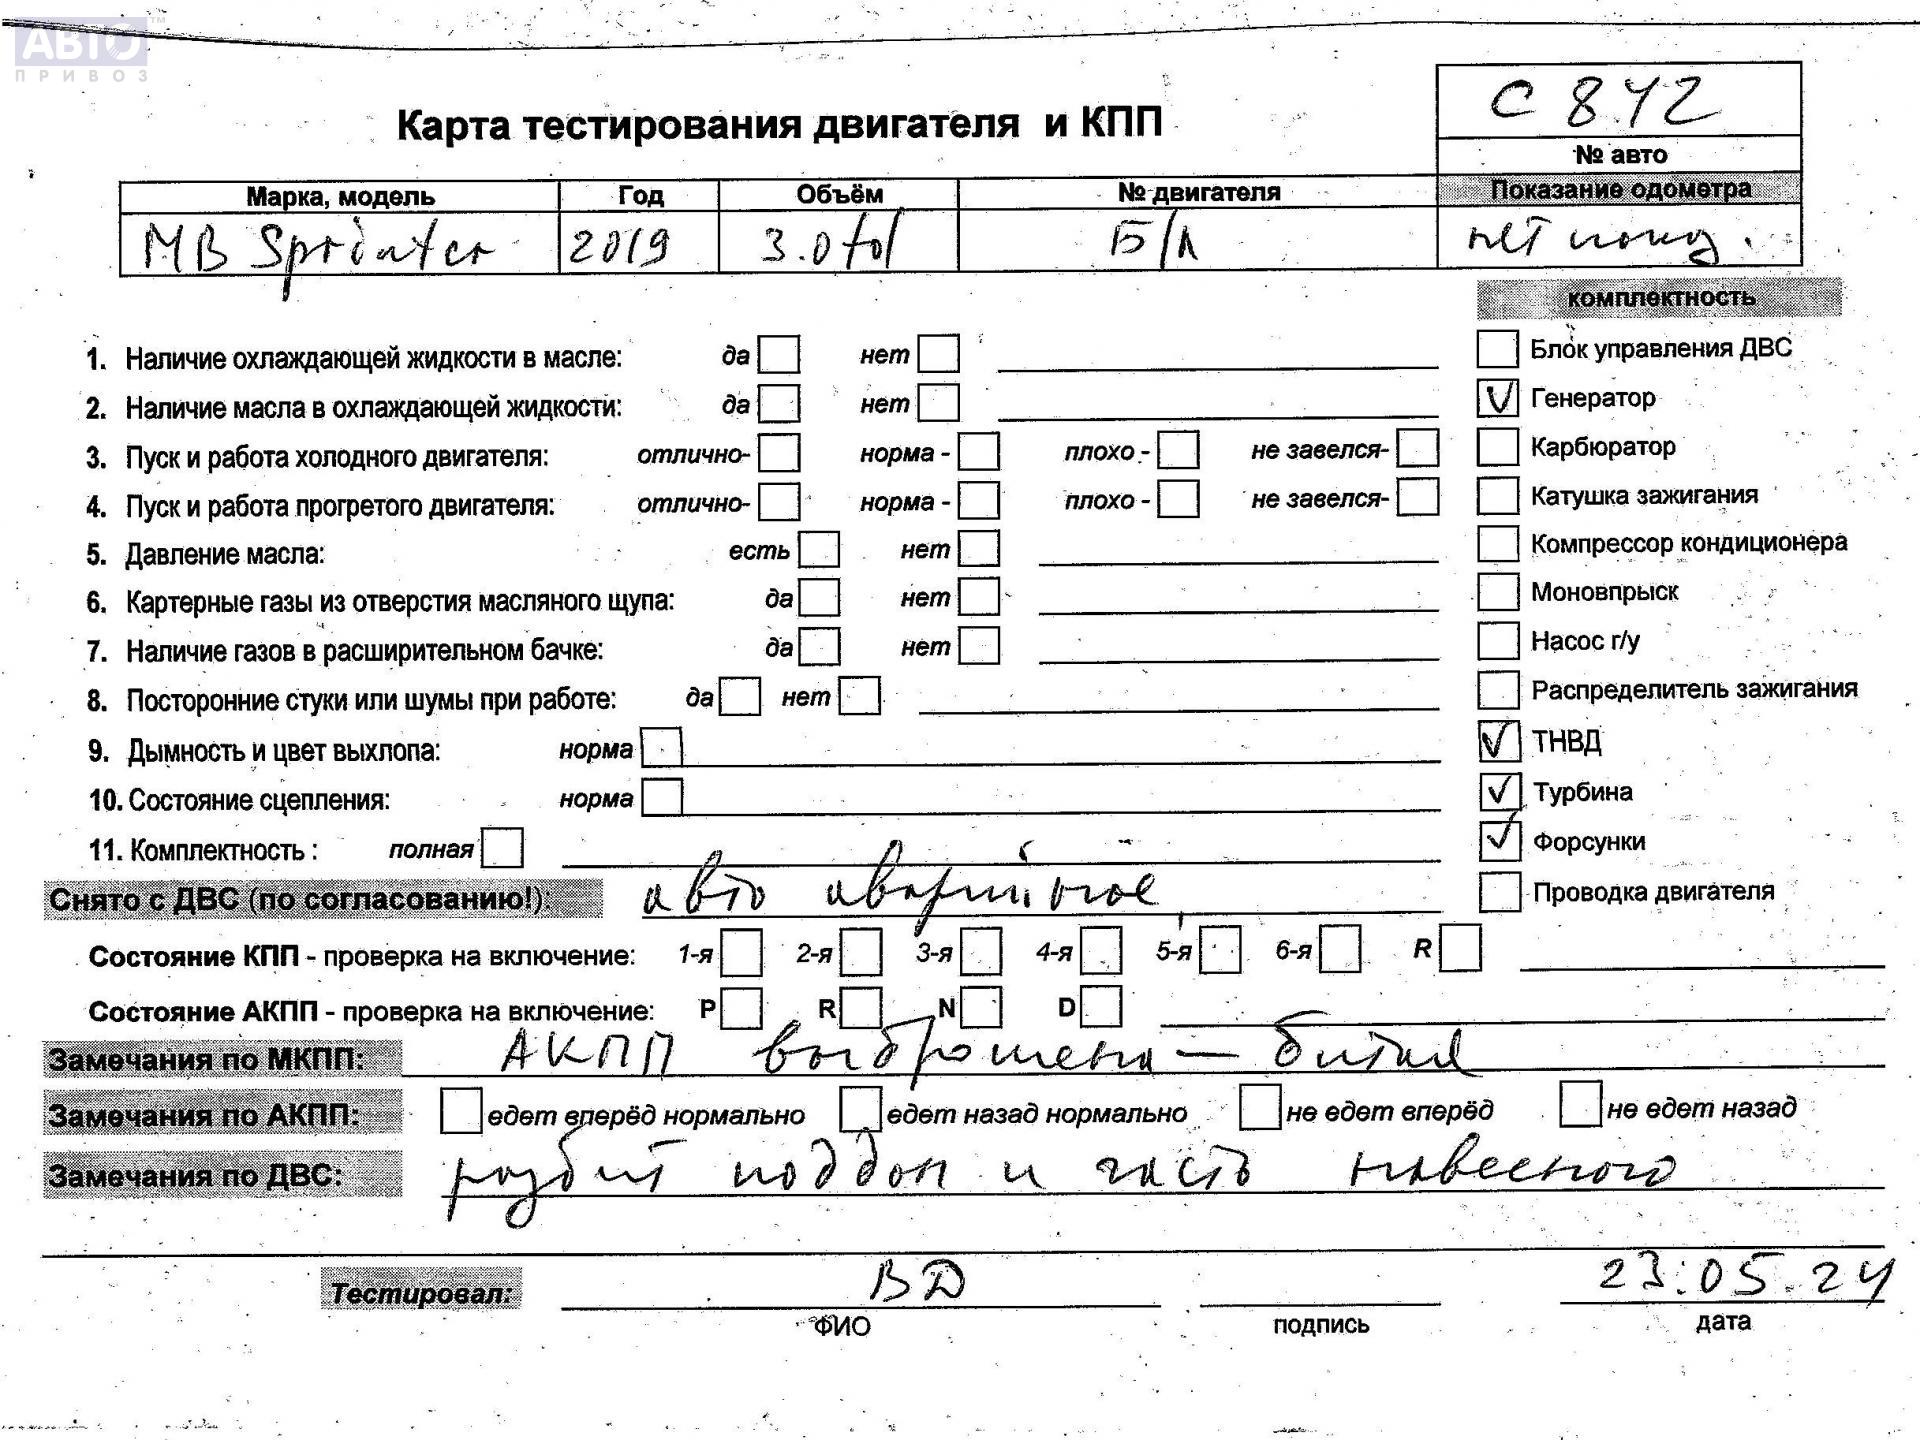 АВТО™
ПРИВОЗ
С 842
Карта тестирования двигателя и КПП
№ авто
Марка, модель Год Объём № двигателя Показание одометра
MB Sprinter 2019 3.0 td Б/Л нет показ.
комплектность
1. Наличие охлаждающей жидкости в масле: да нет
Блок управления ДВС
2. Наличие масла в охлаждающей жидкости: да нет
Генератор
3. Пуск и работа холодного двигателя: отлично- норма - плохо - не завелся-
Карбюратор
4. Пуск и работа прогретого двигателя: отлично- норма - плохо - не завелся-
Катушка зажигания
5. Давление масла: есть нет
Компрессор кондиционера
6. Картерные газы из отверстия масляного щупа: да нет
Моновпрыск
7. Наличие газов в расширительном бачке: да нет
Насос г/у
8. Посторонние стуки или шумы при работе: да нет
Распределитель зажигания
9. Дымность и цвет выхлопа: норма
ТНВД
10. Состояние сцепления: норма
Турбина
11. Комплектность : полная
Форсунки
Снято с ДВС (по согласованию!): авто аварийное
Проводка двигателя
Состояние КПП - проверка на включение: 1-я 2-я 3-я 4-я 5-я 6-я R
Состояние АКПП - проверка на включение: P R N D
Замечания по МКПП: АКПП выброшена — битая
Замечания по АКПП: едет вперёд нормально едет назад нормально не едет вперёд не едет назад
Замечания по ДВС: разбит поддон и часть навесного
Тестировал: ВД 23.05.24
ФИО подпись дата